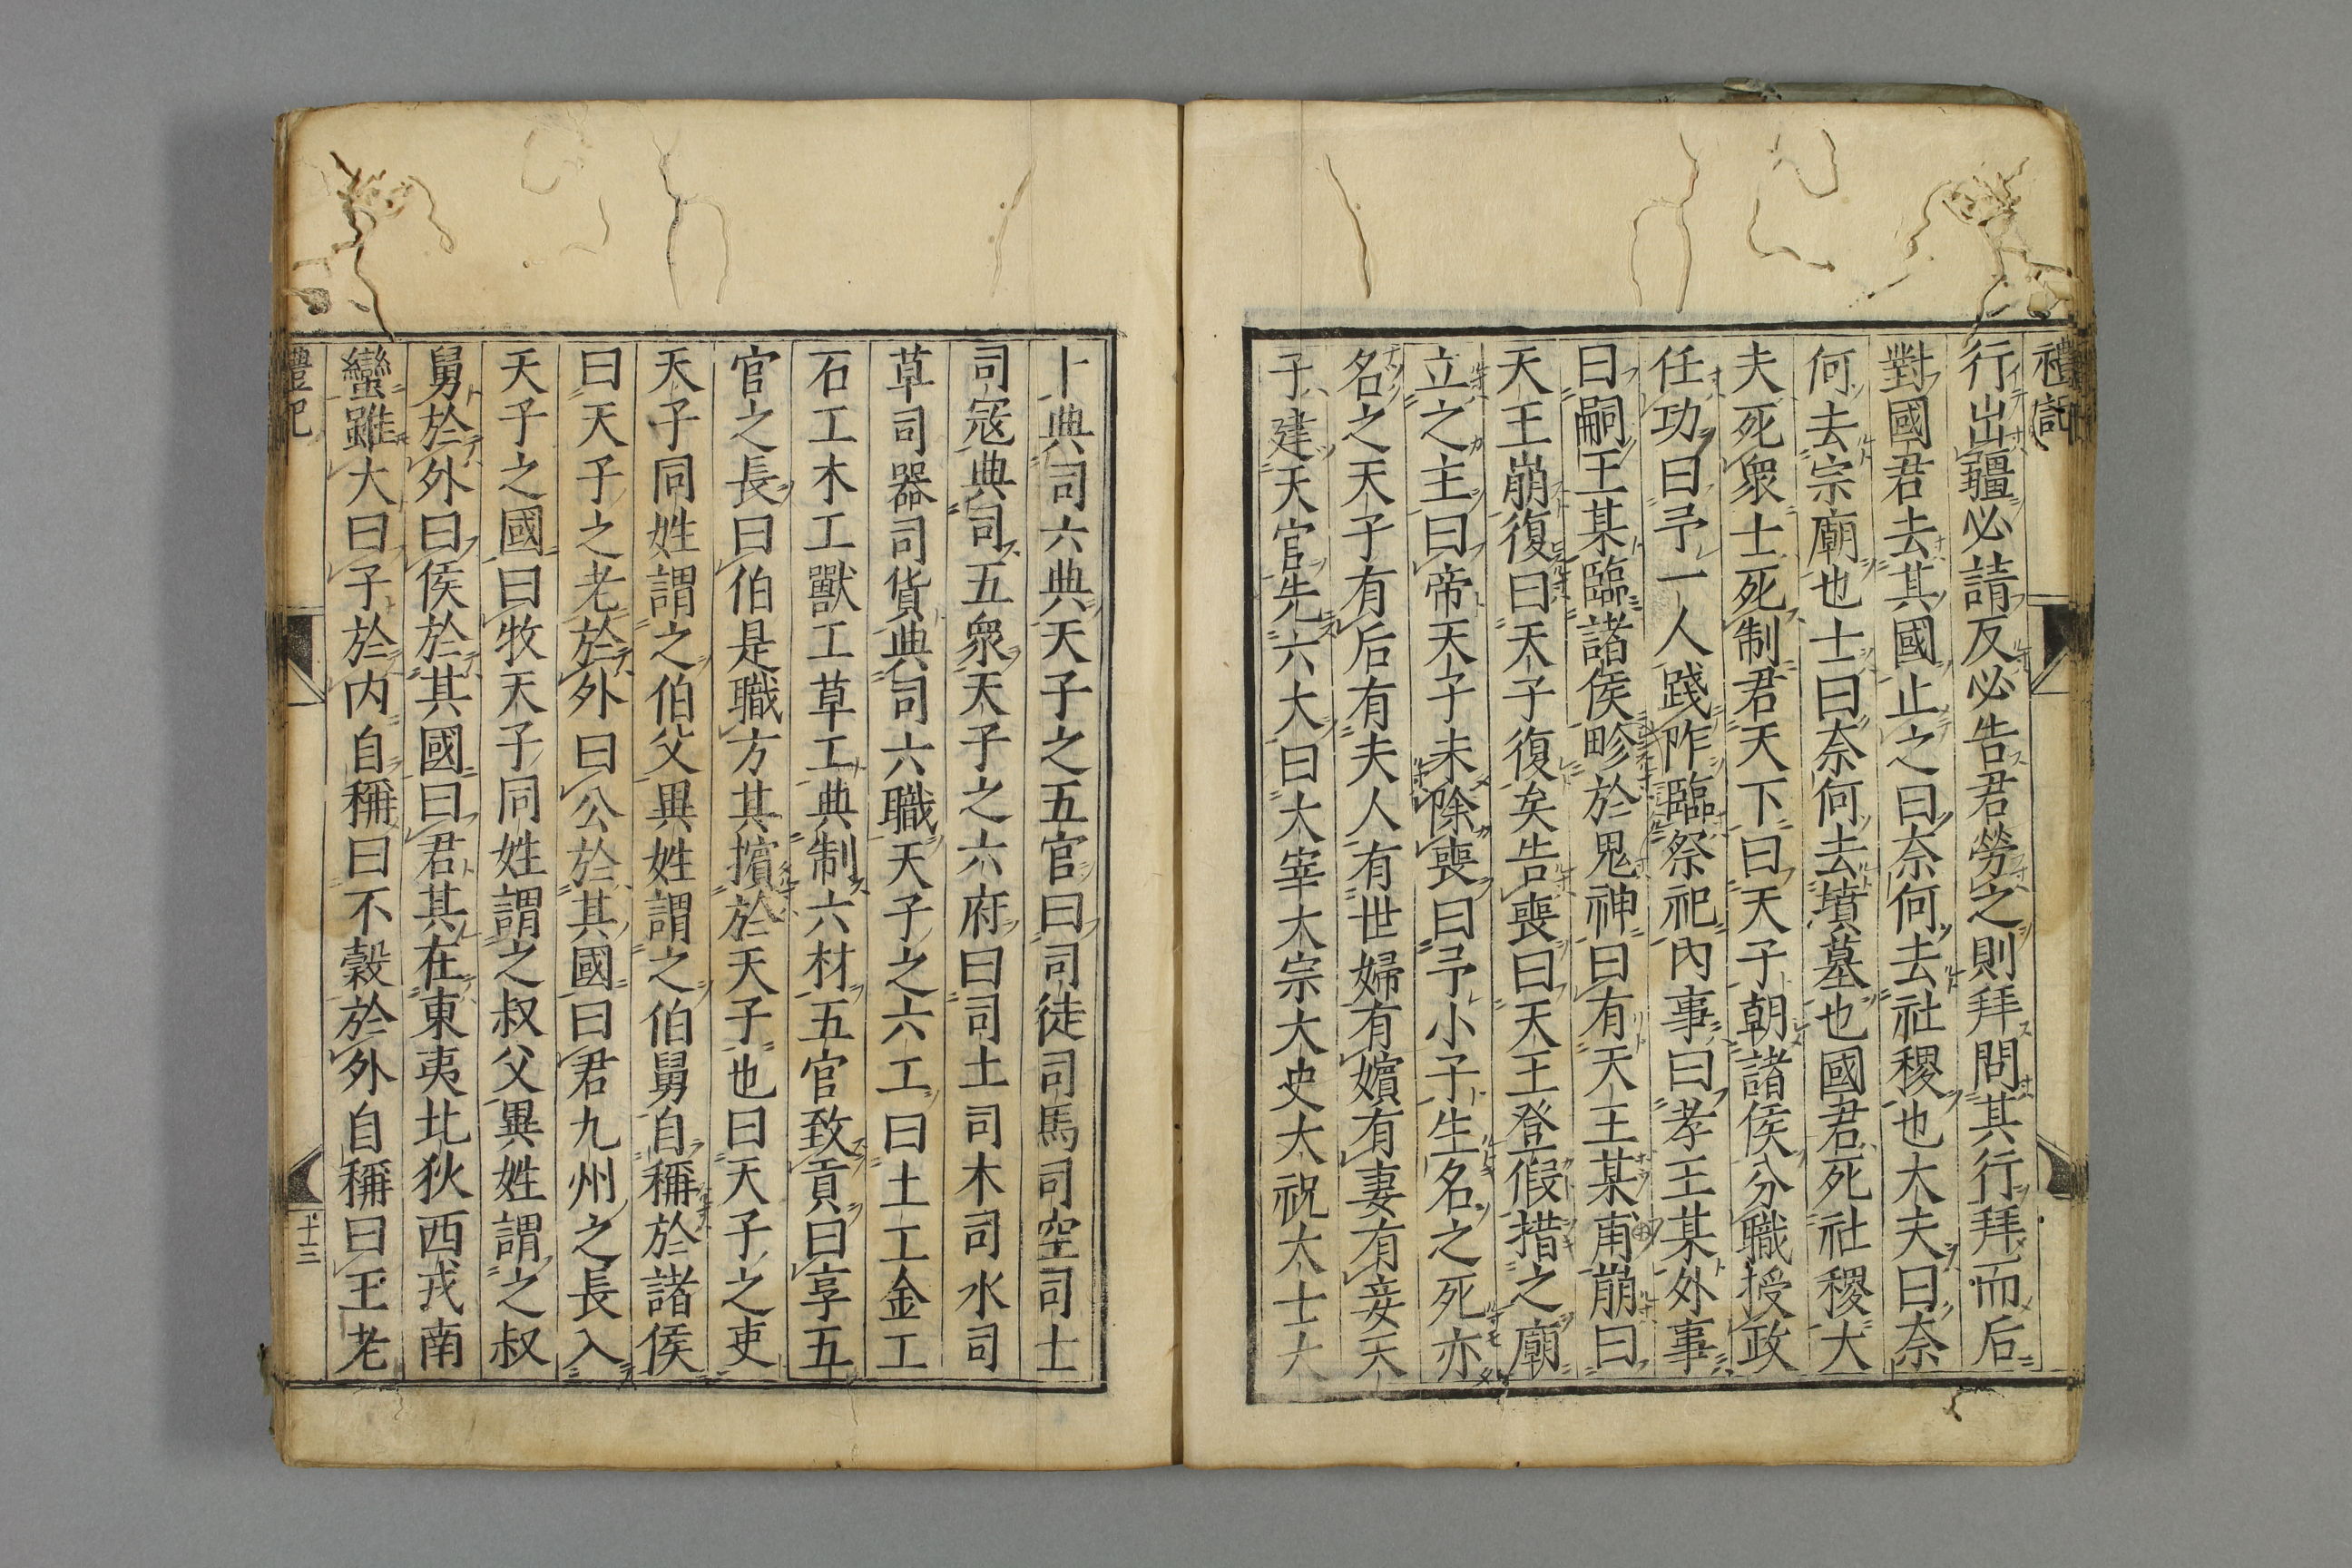 禮記
行出疆必請反必告君勞之則拜問其行拜而后
對國君去其國止之曰奈何去社稷也大夫曰奈
何去宗廟也士曰奈何去墳墓也國君死社稷大
夫死衆士死制君天下曰天子朝諸侯分職授政
任功曰予一人踐阼臨祭祀内事曰孝王某外事
曰嗣王某臨諸侯畛於鬼神曰有天王某甫崩曰
天王崩復曰天子復矣告喪曰天王登假措之廟
立之主曰帝天子未除喪曰予小子生名之死亦
名之天子有后有夫人有世婦有嬪有妻有妾天
子建天官先六大曰大宰大宗大史大祝大士大
卜典司六典天子之五官曰司徒司馬司空司士
司寇典司五衆天子之六府曰司土司木司水司
草司器司貨典司六職天子之六工曰土工金工
石工木工獸工草工典制六材五官致貢曰享五
官之長曰伯是職方其擯於天子也曰天子之吏
天子同姓謂之伯父異姓謂之伯舅自稱於諸侯
曰天子之老於外曰公於其國曰君九州之長入
天子之國曰牧天子同姓謂之叔父異姓謂之叔
舅於外曰侯於其國曰君其在東夷北狄西戎南
蠻雖大曰子於内自稱曰不穀於外自稱曰王老
禮記
十三